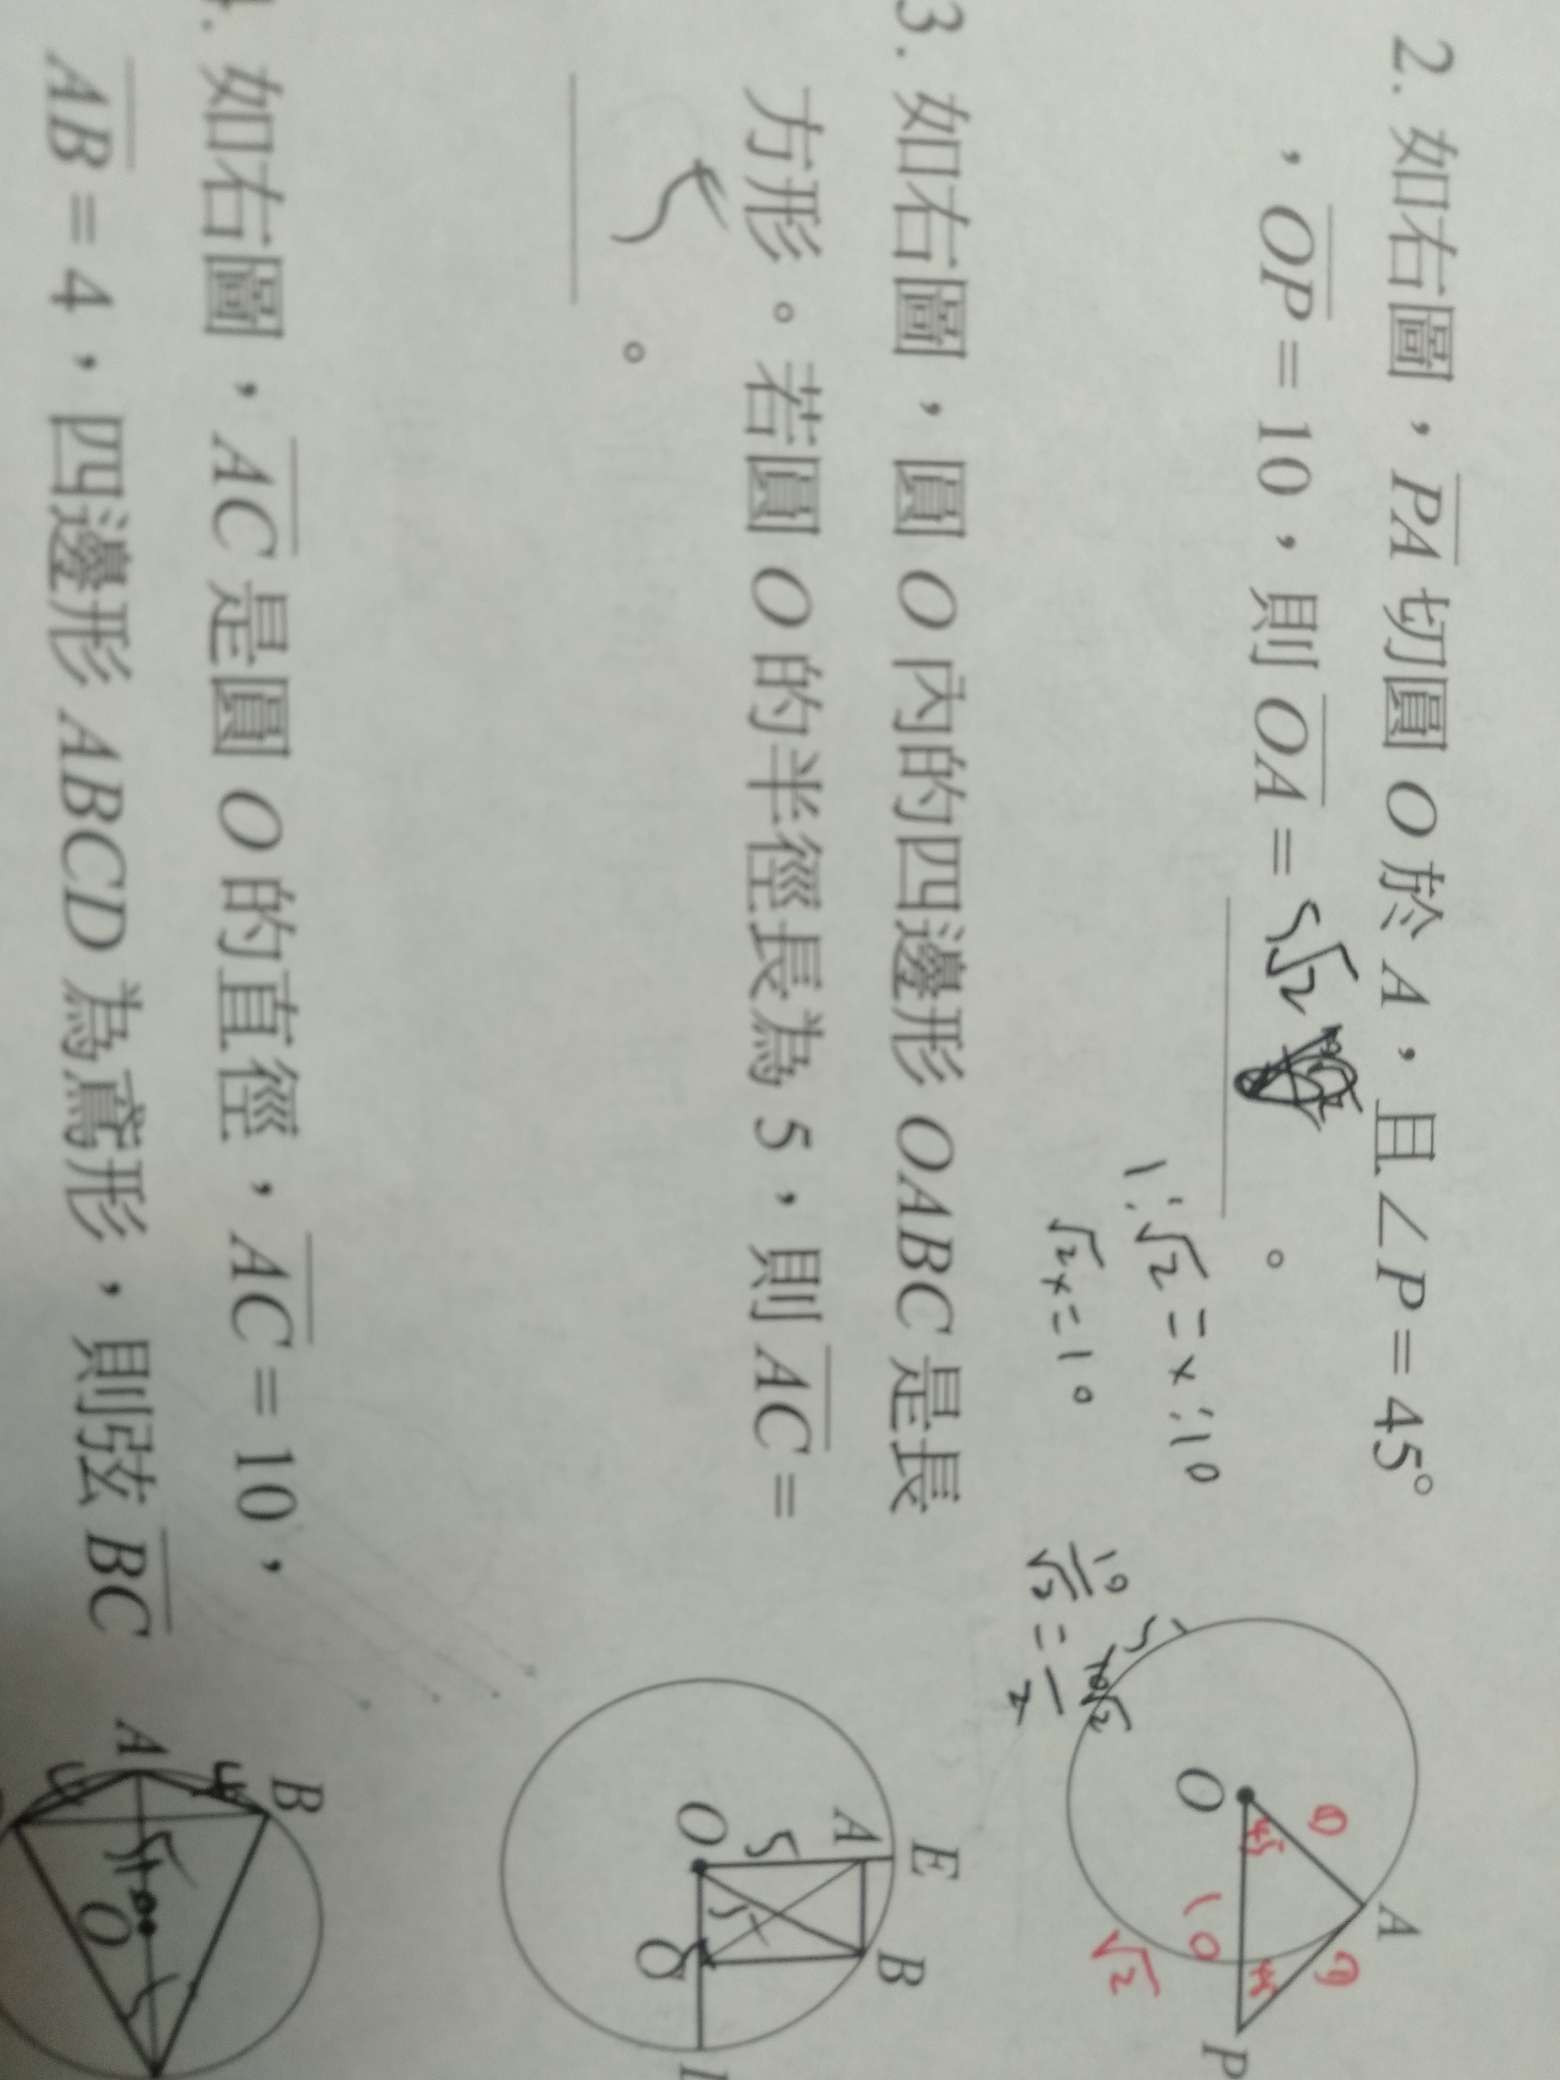 2. 如右圖，PA 切圓 O 於 A，且∠P = 45°
，OP = 10，則 OA = 5√2 。
1:√2 = x:10
√2x = 10
10
√2
=
10√2
2
5
O
A
P
45
45
10
√2
3. 如右圖，圓 O 內的四邊形 OABC 是長
方形。若圓 O 的半徑長為 5，則 AC =
5 。
E
A
B
O
5
5
C
如右圖，AC 是圓 O 的直徑，AC = 10，
AB = 4，四邊形 ABCD 為鳶形，則弦 BC
A
B
4
4
5
O